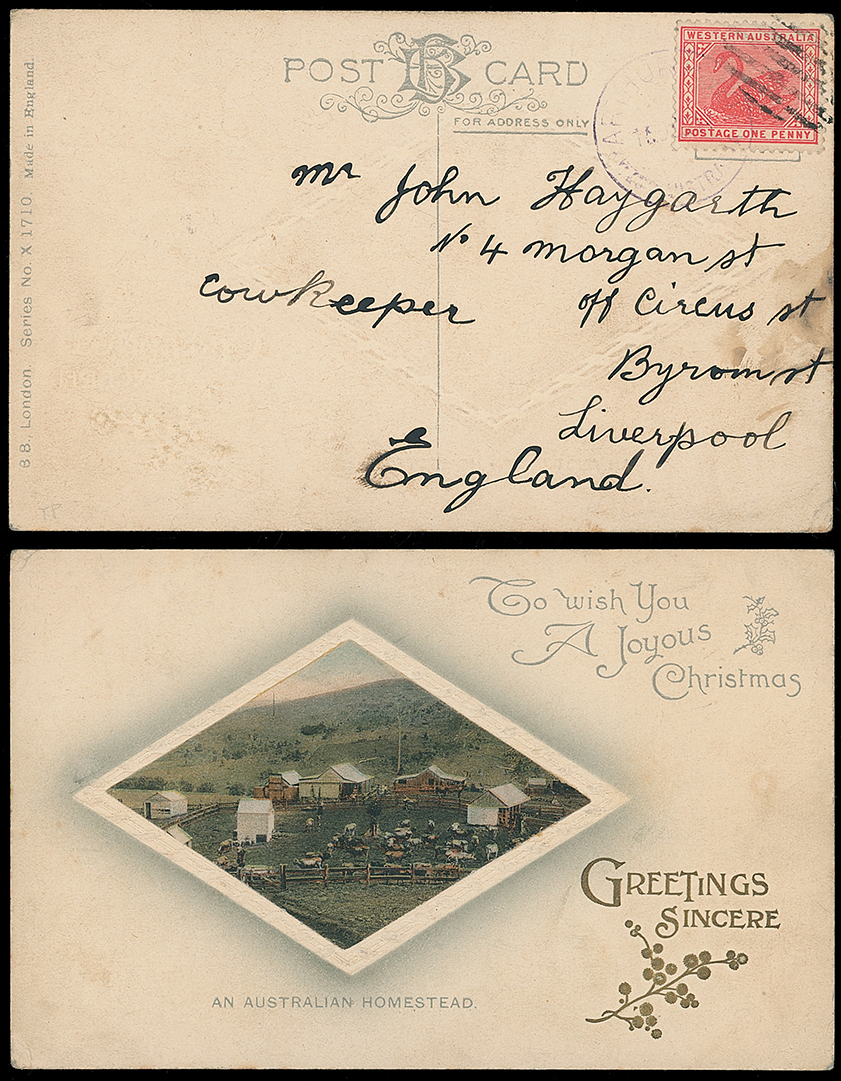 POST CARD
FOR ADDRESS ONLY
WESTERN AUSTRALIA
POSTAGE ONE PENNY
Mr John Haygarth
No 4 morgan st
cowkeeper off Circus st
Byrom st
Liverpool
England.
B B, London. Series No. X 1710. Made in England.
To wish You
A Joyous
Christmas
GREETINGS
SINCERE
AN AUSTRALIAN HOMESTEAD.